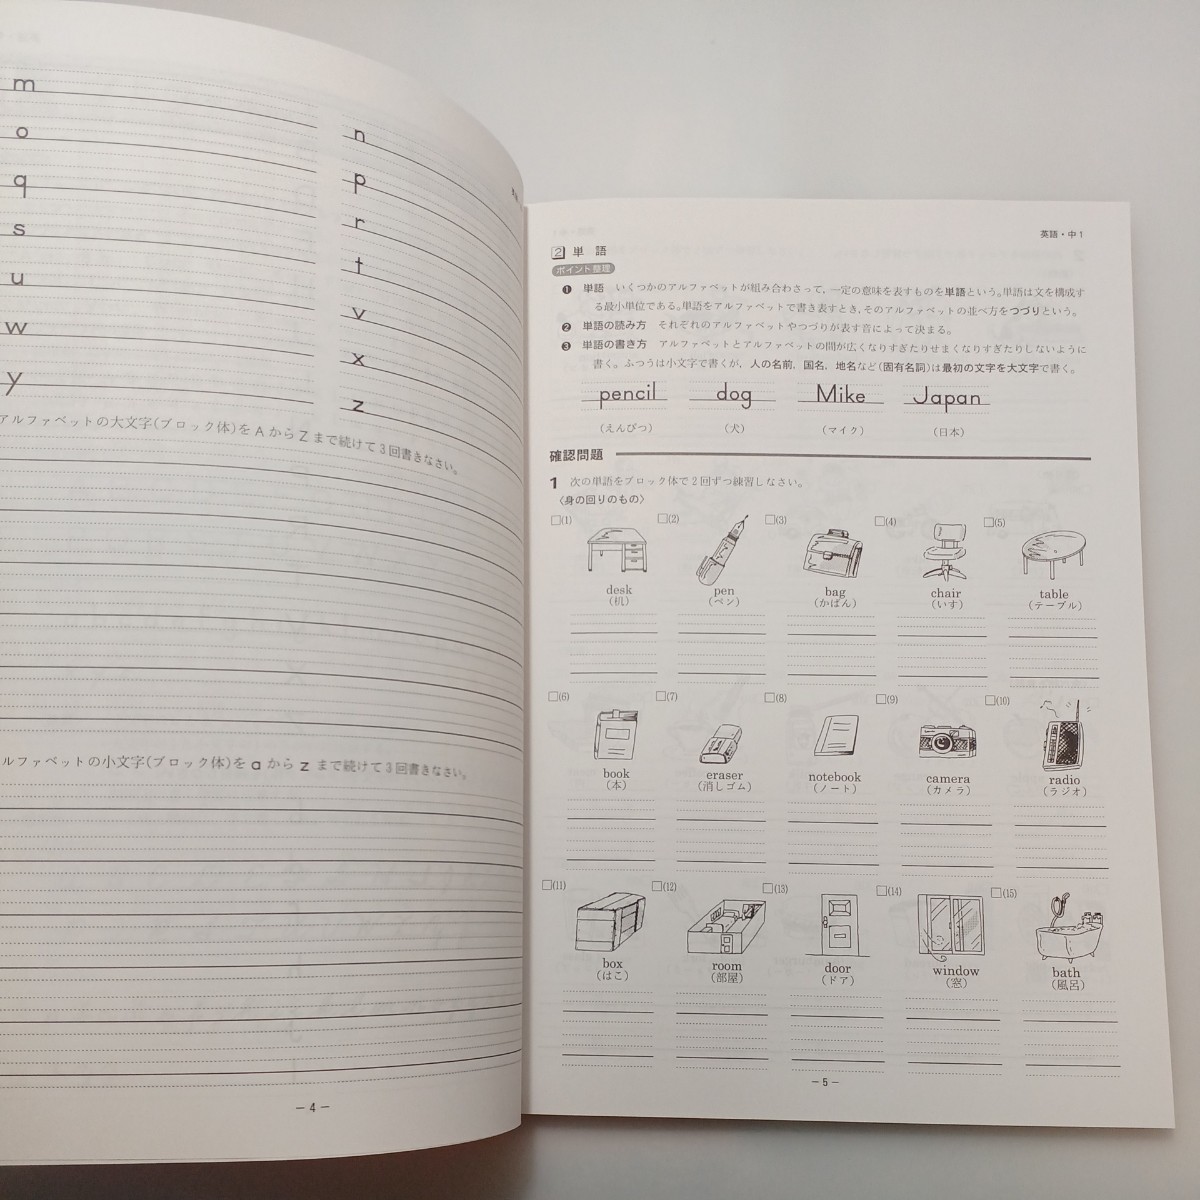 m
n
o
p
q
r
s
t
u
v
w
x
y
z
アルファベットの大文字(ブロック体)をAからZまで続けて3回書きなさい。
ルファベットの小文字(ブロック体)をaからzまで続けて3回書きなさい。
— 4 —
英語・中1
2 単語
ポイント整理
❶ 単語 いくつかのアルファベットが組み合わさって、一定の意味を表すものを単語という。単語は文を構成す
る最小単位である。単語をアルファベットで書き表すとき、そのアルファベットの並べ方をつづりという。
❷ 単語の読み方 それぞれのアルファベットやつづりが表す音によって決まる。
❸ 単語の書き方 アルファベットとアルファベットの間が広くなりすぎたりせまくなりすぎたりしないように
書く。ふつうは小文字で書くが、人の名前、国名、地名など(固有名詞)は最初の文字を大文字で書く。
pencil dog Mike Japan
(えんぴつ) (犬) (マイク) (日本)
確認問題
1 次の単語をブロック体で2回ずつ練習しなさい。
〈身の回りのもの〉
□(1) □(2) □(3) □(4) □(5)
desk pen bag chair table
(机) (ペン) (かばん) (いす) (テーブル)
□(6) □(7) □(8) □(9) □(10)
book eraser notebook camera radio
(本) (消しゴム) (ノート) (カメラ) (ラジオ)
□(11) □(12) □(13) □(14) □(15)
box room door window bath
(はこ) (部屋) (ドア) (窓) (風呂)
— 5 —